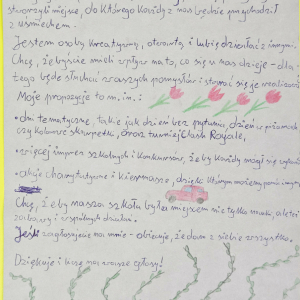 stworzyli miejsce, do którego każdy z nas będzie przychodził
z uśmiechem.
Jestem osobą kreatywną, otwartą i lubię działać z innymi.
Chcę, byście mieli wpływ na to, co się u nas dzieje - dla-
tego będę słuchać waszych pomysłów i starać się je realizować.
Moje propozycje to m.in.:
• dni tematyczne, takie jak dzień bez pytania, dzień w piżamach
czy kolorowe skarpetki, oraz turniej Clash Royale,
• więcej imprez szkolnych i konkursów, żeby każdy mógł się
• akcje charytatywne i kiermasze, dzięki którym możemy pomóc innym
Chcę, aby nasza szkoła była miejscem nie tylko nauki, ale też
zabawy i wspólnych działań.
Jeśli zagłosujecie na mnie - obiecuję, że dam z siebie wszystko.
Dziękuję i liczę na wasze głosy!